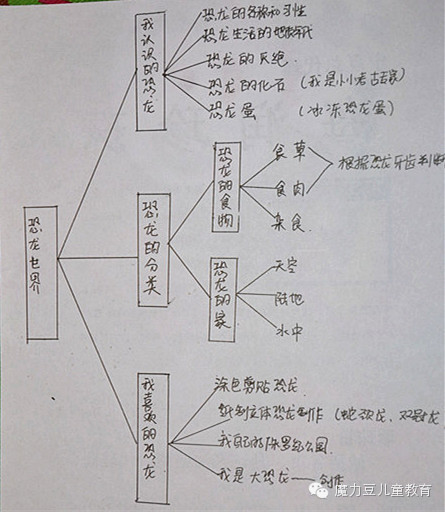 恐龙世界
我认识的恐龙
恐龙的名称和习性
恐龙生活的地球年代
恐龙的灭绝.
恐龙的化石 (我是小小考古家)
恐龙蛋 (冰冻恐龙蛋)
恐龙的分类
恐龙的食物
食草
食肉
杂食.
根据恐龙牙齿判断
恐龙的家
天空
陆地
水中
我喜欢的恐龙
涂色剪贴恐龙.
纸制立体恐龙制作
我的侏罗纪公园.
我是大恐龙——创作
魔力豆儿童教育